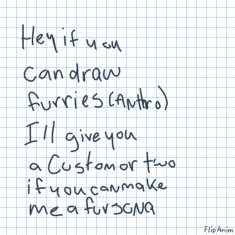 Hey if you
can draw
furries (Anthro)
I'll give you
a Custom or two
if you can make
me a fursona
FlipAnim